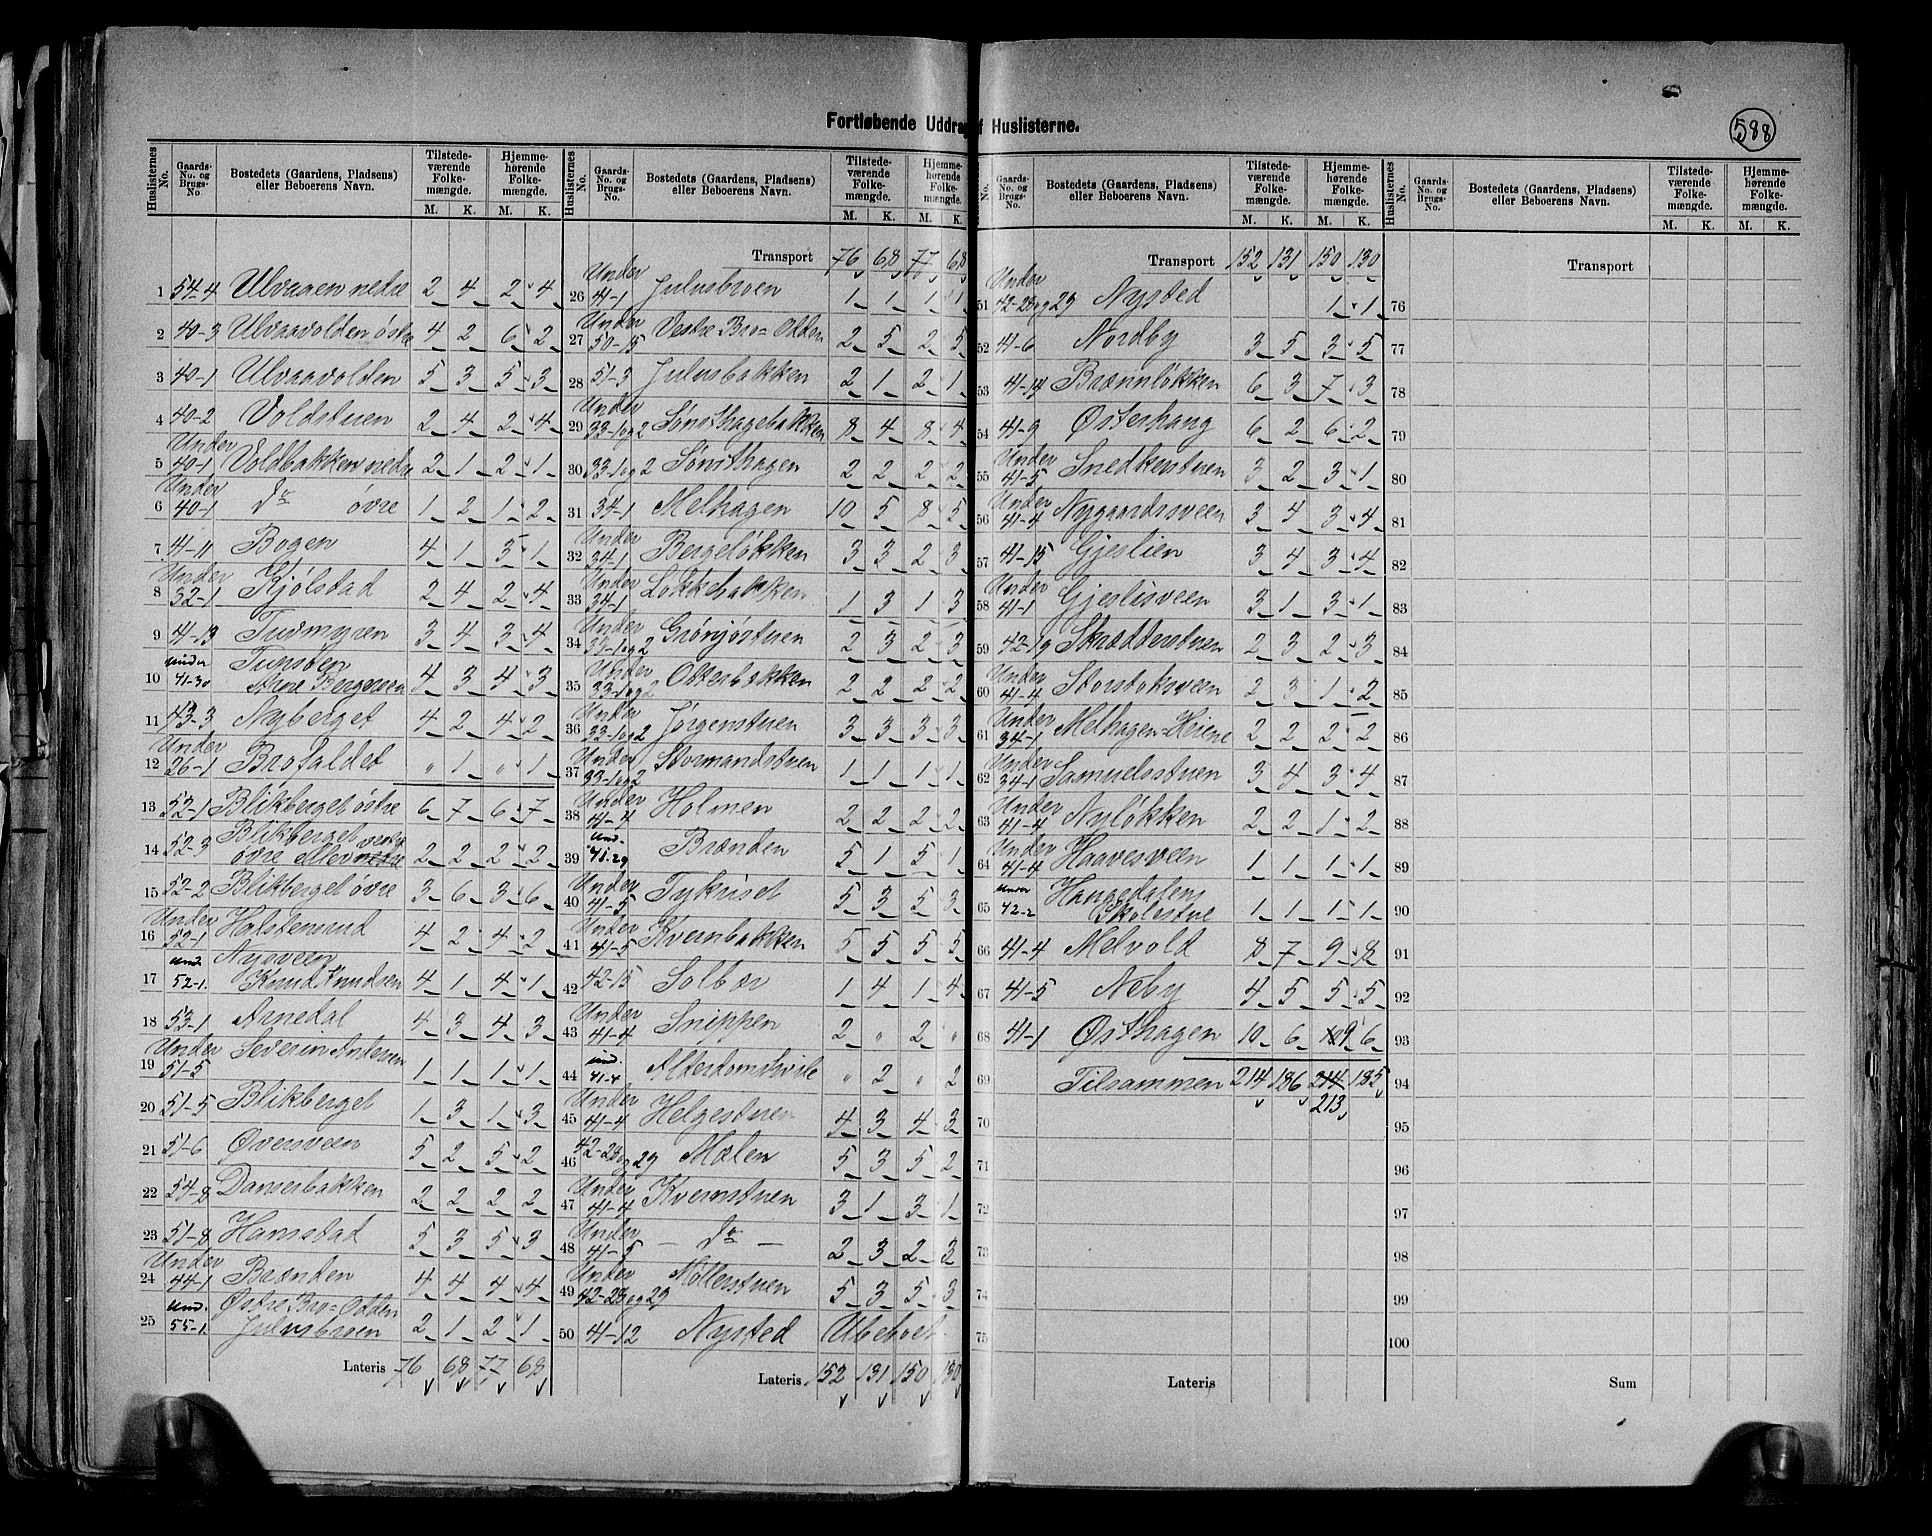 Fortløbende Uddrag af Huslisterne.
588
Huslisternes No. | Gaards-No. og Brugs-No. | Bostedets (Gaardens, Pladsens) eller Beboerens Navn. | Tilstedeværende Folkemængde. M. K. | Hjemmehørende Folkemængde. M. K.
1 54-4 Ulvaaen nedre 2 4 2 4
2 40-3 Ulvaavolden østre 4 2 6 2
3 40-1 Ulvaavolden 5 3 5 3
4 40-2 Voldstuen 2 4 2 4
5 Under 40-1 Voldbakken nedre 2 1 2 1
6 Under 40-1 do øvre 1 2 1 2
7 41-11 Bogen 4 1 3 1
8 Under 32-1 Kjølstad 2 4 2 4
9 41-13 Tusmyren 3 4 3 4
10 under 41-30 Tunsøen Arne Bergersen 4 3 4 3
11 43-3 Nyberget 4 2 4 2
12 Under 26-1 Brofaldet " 1 " 1
13 52-1 Blikberget østre 6 7 6 7
14 52-3 Blikberget vestre øvre 2 2 2 2
15 52-2 Blikberget øvre 3 6 3 6
16 Under 52-1 Holstensrud 4 2 4 2
17 und. 52-1. Nysveen Knud Knudsen 4 1 4 1
18 53-1 Arnedal 4 3 4 3
19 Under 51-5 Severin Antersen 1 1 1 1
20 51-5 Blikberget 1 3 1 3
21 51-6 Øversveen 5 2 5 2
22 54-8 Danserbakken 2 2 2 2
23 51-8 Hamstad 5 3 5 3
24 Under 44-1 Brænden 4 4 4 4
25 und. 55-1. Østre Bro=Odden Julusbroen 2 1 2 1
Lateris 76 68 77 68
Transport 76 68 77 68
26 Under 41-1 Julusbroen 1 1 1 1
27 Under 50-15 Vestre Bro=Odden 2 5 2 5
28 51-3 Julusbakken 2 1 2 1
29 Under 33-1og2 Sønsthagebakken 8 4 8 4
30 33-1og2 Sønsthagen 2 2 2 2
31 34-1 Melhagen 10 5 8 5
32 Under 34-1 Bergeløkken 3 3 2 3
33 Under 34-1 Løkkebakken 1 3 1 3
34 Under 33-1og2 Grønjorstuen 2 3 2 3
35 Under 33-1og2 Otterbakken 2 2 2 2
36 Under 33-1og2 Jørgenstuen 3 3 3 3
37 Under 33-1og2 Stormandstuen 1 1 1 1
38 Under 41-4 Holmen 2 2 2 2
39 und. 41-29 Brænden 5 1 5 1
40 Under 41-5 Tykriset 5 3 5 3
41 Under 41-5 Kvernbakken 5 5 5 5
42 42-15 Solbær 1 4 1 4
43 Under 41-4 Snippen 2 " 2 "
44 und. 41-4 Alderdomshvile " 2 " 2
45 Under 41-4 Helgestuen 4 3 4 3
46 42-28og29 Mælen 5 3 5 2
47 Under 41-4 Kvernstuen 3 1 3 1
48 Under 41-5 - do - 2 3 2 3
49 Under 42-28og29 Møllerstuen 5 3 5 3
50 41-12 Nysted Ubeboet
Lateris 152 131 150 130
Transport 152 131 150 130
51 Under 42-28og29 Nysted 1 1
52 41-6 Nordby 3 5 3 5
53 41-14 Brænnløkken 6 3 7 3
54 41-9 Østerhaug 6 2 6 2
55 Under 41-5 Snedkerstuen 3 2 3 1
56 Under 41-4 Nygaardssveen 3 4 3 4
57 41-15 Gjeslien 3 4 3 4
58 Under 41-1 Gjeslisveen 3 1 3 1
59 42-19 Skrædderstuen 2 3 2 3
60 Under 41-4 Storstoksveen 2 3 1 2
61 Under 34-1 Melhagen=Heiene 2 2 2 2
62 Under 34-1 Samuelsstuen 3 4 3 4
63 Under 41-4 Nyløkken 2 2 1 2
64 Under 41-4 Haavesveen 1 1 1 1
65 Under 42-2 Haugedalens Skolestue 1 1 1 1
66 41-4 Melvold 8 7 9 8
67 41-5 Neby 4 5 5 5
68 41-1 Østhagen 10 6 9 6
69 Tilsammen 214 186 214 185
213
70
71
72
73
74
75
Lateris
Transport
76
77
78
79
80
81
82
83
84
85
86
87
88
89
90
91
92
93
94
95
96
97
98
99
100
Sum